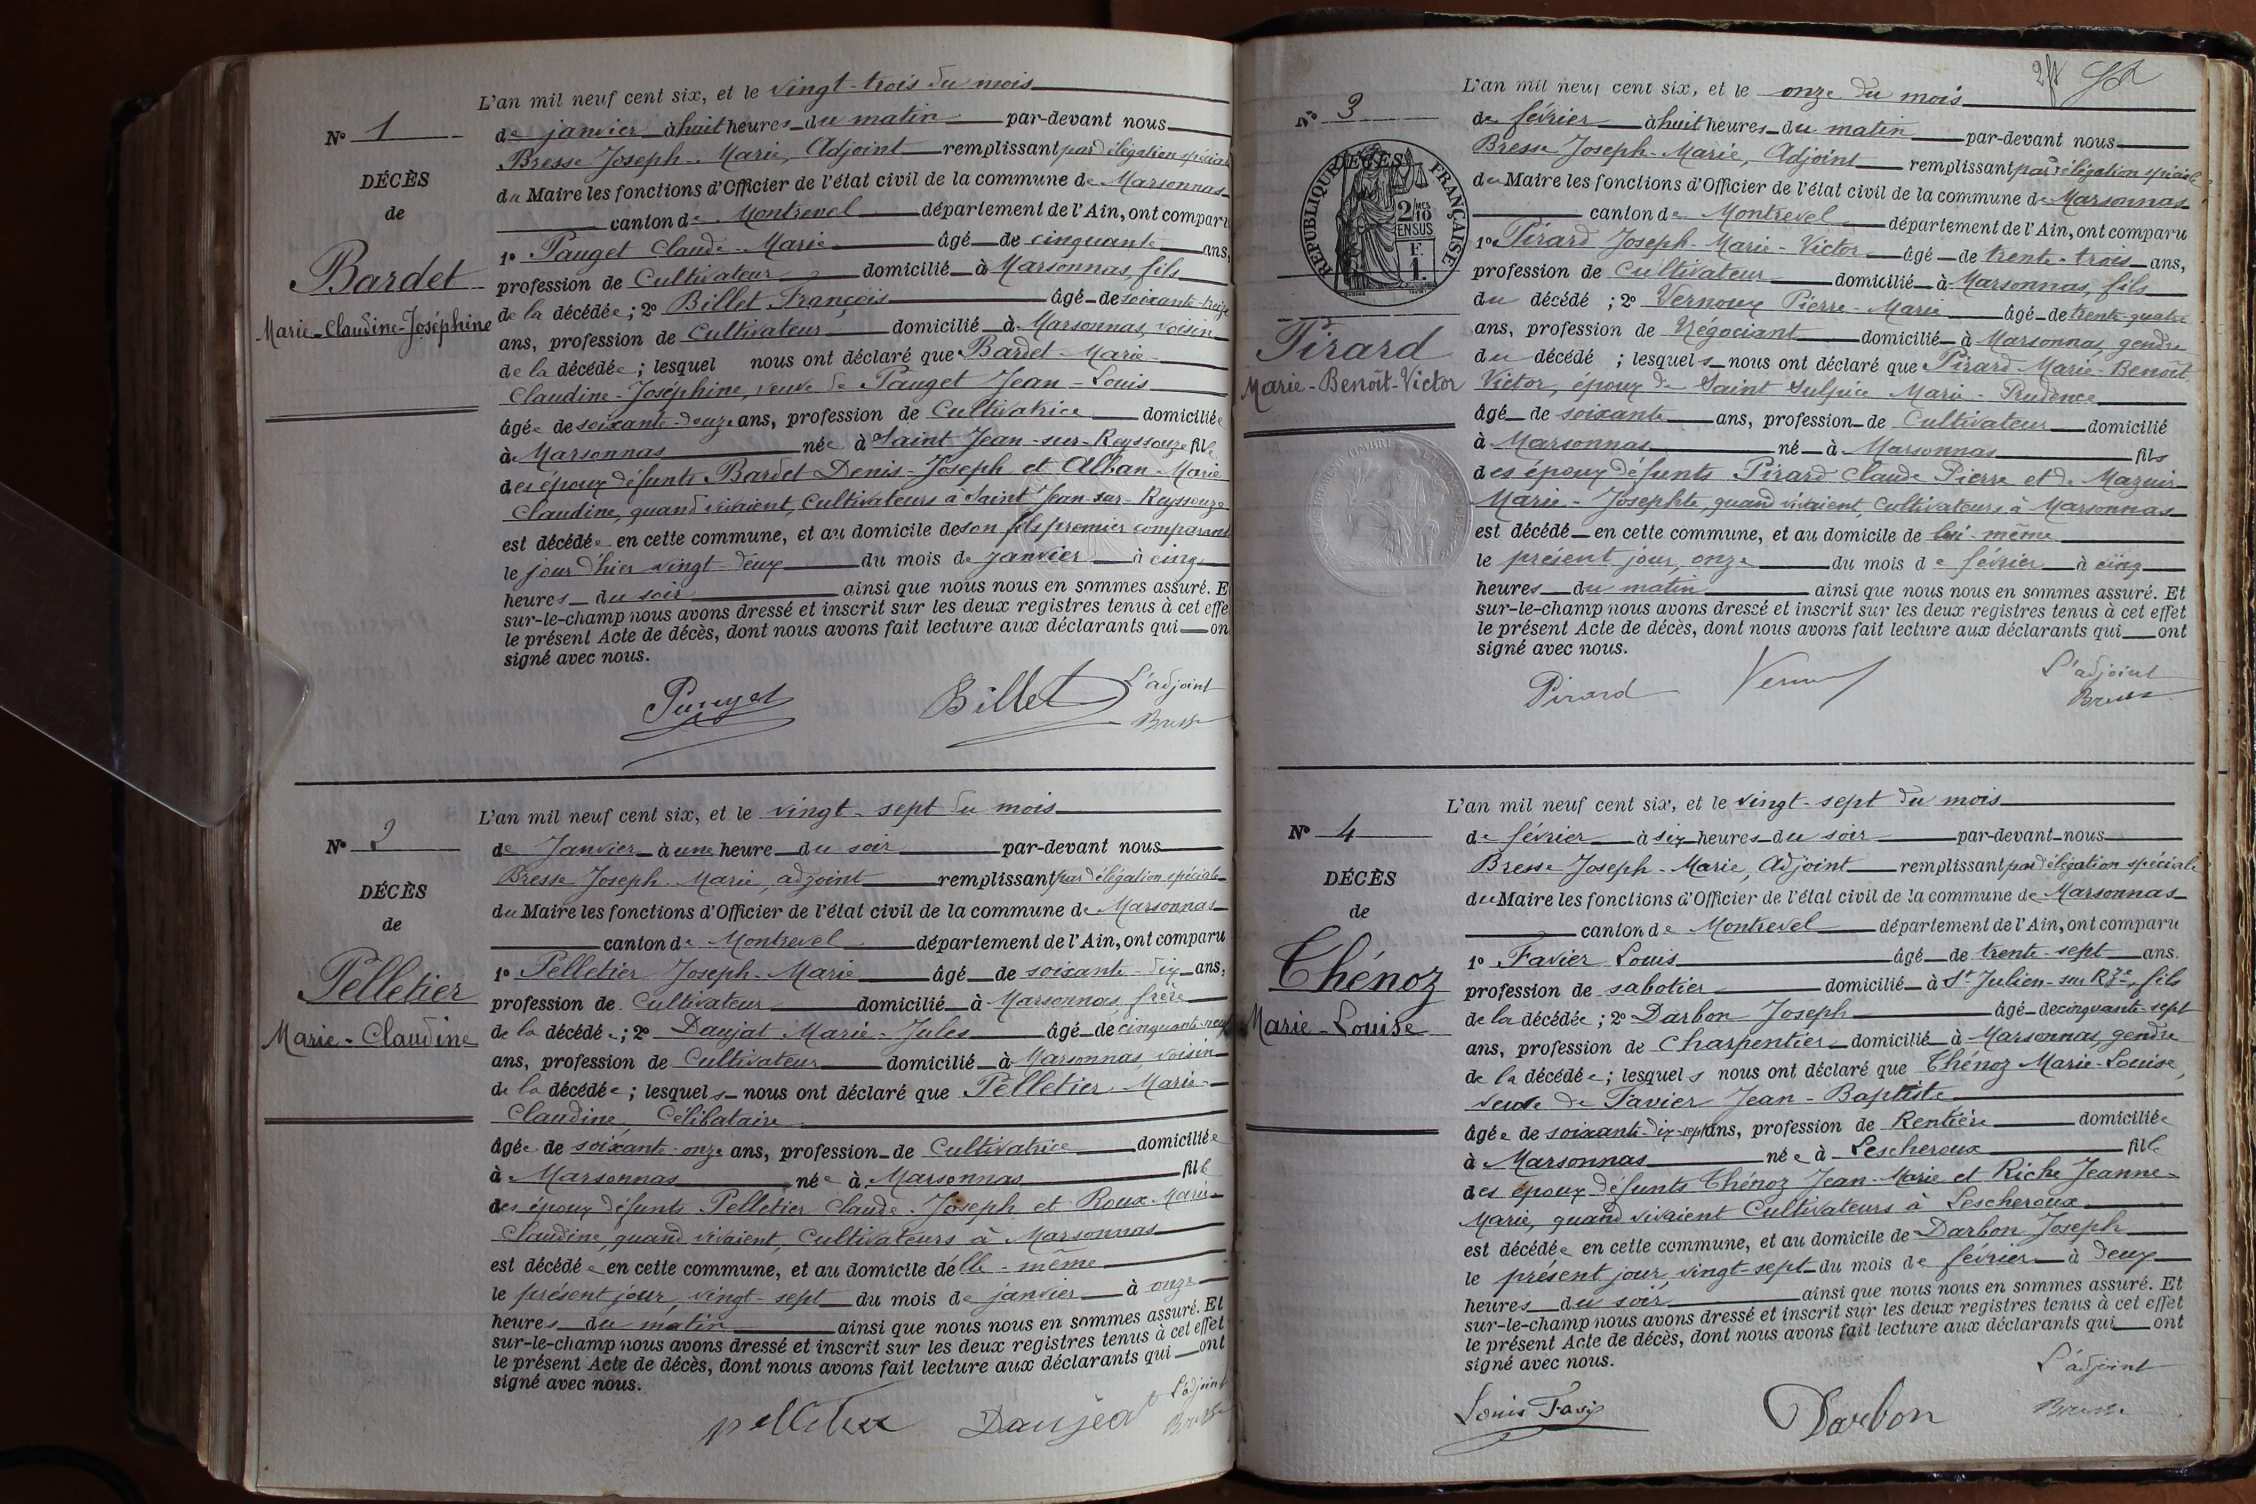 L'an mil neuf cent six, et le vingt-trois du mois
N° 1
de janvier à huit heures du matin par-devant nous
Bresse Joseph-Marie, Adjoint remplissant par délégation spéciale
DÉCÈS
du Maire les fonctions d'Officier de l'état civil de la commune de Marsonnas
de
canton de Montrevel département de l'Ain, ont comparu
1° Pauget Claude-Marie âgé de cinquante ans,
Bardet
profession de Cultivateur domicilié à Marsonnas, fils
Marie-Claudine-Joséphine
de la décédée ; 2° Billet François âgé de soixante-treize
ans, profession de Cultivateur domicilié à Marsonnas, voisin
de la décédée ; lesquel nous ont déclaré que Bardet Marie-
Claudine-Joséphine, veuve de Pauget Jean-Louis
âgée de soixante-douze ans, profession de Cultivatrice domiciliée
à Marsonnas née à Saint Jean-sur-Reyssouze fille
des époux défunts Bardet Denis-Joseph et Alban Marie
Claudine, quand vivaient, Cultivateurs à Saint Jean-sur-Reyssouze
est décédée en cette commune, et au domicile de son fils premier comparant
le jour d'hier vingt-deux du mois de janvier à cinq
heures du soir ainsi que nous nous en sommes assuré. E
sur-le-champ nous avons dressé et inscrit sur les deux registres tenus à cet effe
le présent Acte de décès, dont nous avons fait lecture aux déclarants qui on
signé avec nous.
Pauget Billet L'adjoint
Bresse
L'an mil neuf cent six, et le vingt-sept du mois
N° 2
de Janvier à une heure du soir par-devant nous
Bresse Joseph-Marie, adjoint remplissant par délégation spéciale
DÉCÈS
du Maire les fonctions d'Officier de l'état civil de la commune de Marsonnas
de
canton de Montrevel département de l'Ain, ont comparu
1° Pelletier Joseph-Marie âgé de soixante-dix ans,
Pelletier
profession de Cultivateur domicilié à Marsonnas, frère
Marie-Claudine
de la décédée ; 2° Daujat Marie-Jules âgé de cinquante-neuf
ans, profession de Cultivateur domicilié à Marsonnas, voisin
de la décédée ; lesquels nous ont déclaré que Pelletier Marie-
Claudine, Célibataire
âgée de soixant-onze ans, profession de Cultivatrice domiciliée
à Marsonnas née à Marsonnas fille
des époux défunts Pelletier Claude-Joseph et Roux Marie
Claudine, quand vivaient, Cultivateurs à Marsonnas
est décédée en cette commune, et au domicile d'elle-même
le présent jour, vingt-sept du mois de janvier à onze
heures du matin ainsi que nous nous en sommes assuré. Et
sur-le-champ nous avons dressé et inscrit sur les deux registres tenus à cet effet
le présent Acte de décès, dont nous avons fait lecture aux déclarants qui ont
signé avec nous.
pelletier Daujat L'adjoint
Bresse
L'an mil neuf cent six, et le onze du mois
N° 3
de février à huit heures du matin par-devant nous
Bresse Joseph-Marie, Adjoint remplissant par délégation spéciale
du Maire les fonctions d'Officier de l'état civil de la commune de Marsonnas
canton de Montrevel département de l'Ain, ont comparu
RÉPUBLIQUE FRANÇAISE
DÉCES
2/10
EN SUS
F.
1.
1° Pirard Joseph-Marie-Victor âgé de trente-trois ans,
profession de Cultivateur domicilié à Marsonnas, fils
du décédé ; 2° Vernoux Pierre-Marie âgé de trente-quatre
Pirard
ans, profession de Négociant domicilié à Marsonnas, gendre
Marie-Benoît-Victor
du décédé ; lesquels nous ont déclaré que Pirard Marie-Benoît
Victor, époux de Saint Sulpice Marie-Prudence
âgé de soixante ans, profession de Cultivateur domicilié
à Marsonnas né à Marsonnas fils
des époux défunts Pirard Claude Pierre et de Mazuir
Marie-Josephte, quand vivaient, Cultivateurs à Marsonnas
est décédé en cette commune, et au domicile de lui-même
le présent jour, onze du mois de février à cinq
heures du matin ainsi que nous nous en sommes assuré. Et
sur-le-champ nous avons dressé et inscrit sur les deux registres tenus à cet effet
le présent Acte de décès, dont nous avons fait lecture aux déclarants qui ont
signé avec nous.
Pirard L'adjoint
Bresse
L'an mil neuf cent six, et le vingt-sept du mois
N° 4
de février à six heures du soir par-devant nous
Bresse Joseph-Marie, Adjoint remplissant par délégation spéciale
DÉCÈS
du Maire les fonctions d'Officier de l'état civil de la commune de Marsonnas
de
canton de Montrevel département de l'Ain, ont comparu
1° Favier Louis âgé de trente-sept ans.
Thénoz
profession de sabotier domicilié à St Julien-sur Rze, fils
Marie-Louise
de la décédée ; 2° Darbon Joseph âgé de cinquante-sept
ans, profession de Charpentier domicilié à Marsonnas, gendre
de la décédée ; lesquels nous ont déclaré que Thénoz Marie-Louise,
veuve de Favier Jean-Baptiste
âgée de soixante-dix-sept ans, profession de Rentière domiciliée
à Marsonnas née à Lescheroux fille
des époux défunts Thénoz Jean-Marie et Riche Jeanne-
Marie, quand vivaient Cultivateurs à Lescheroux
est décédée en cette commune, et au domicile de Darbon Joseph
le présent jour, vingt-sept du mois de février à deux
heures du soir ainsi que nous nous en sommes assuré. Et
sur-le-champ nous avons dressé et inscrit sur les deux registres tenus à cet effet
le présent Acte de décès, dont nous avons fait lecture aux déclarants qui ont
signé avec nous.
L'adjoint
Louis Favier Darbon Bresse